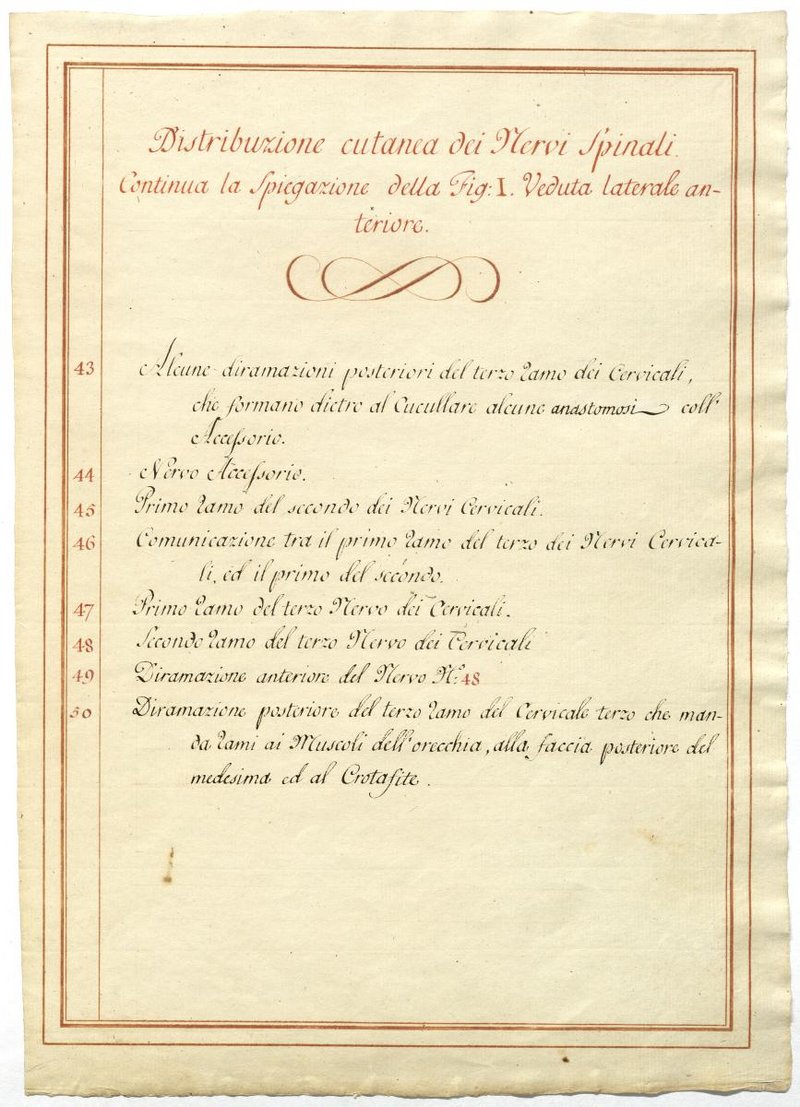 Distribuzione cutanea dei Nervi Spinali.
Continua la Spiegazione della Fig: I. Veduta laterale an-
teriore.
43 Alcune diramazioni posteriori del terzo ramo dei Cervicali,
che formano dietro al Cucullare alcune anastomosi coll'
Accessorio.
44 Nervo Accessorio.
45 Primo ramo del secondo dei Nervi Cervicali.
46 Comunicazione tra il primo ramo del terzo dei Nervi Cervica-
li, ed il primo del secondo.
47 Primo ramo del terzo Nervo dei Cervicali.
48 Secondo ramo del terzo Nervo dei Cervicali
49 Diramazione anteriore del Nervo N.º 48
50 Diramazione posteriore del terzo ramo del Cervicale terzo che man-
da rami ai Muscoli dell'orecchia, alla faccia posteriore del
medesima ed al Crotafite.